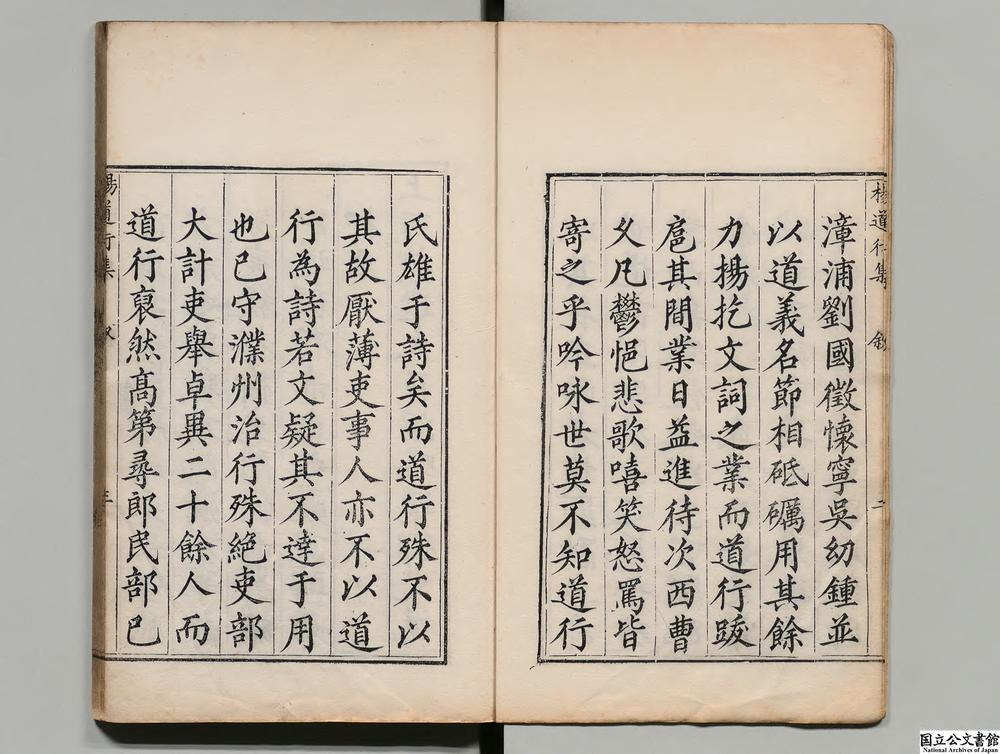 楊道行集 敘 二
漳浦劉國徵懷寧吳幼鍾並
以道義名節相砥礪用其餘
力揚扢文詞之業而道行踆
扈其間業日益進待次西曹
久凡鬱悒悲歌嘻笑怒罵皆
寄之乎吟咏世莫不知道行
氏雄于詩矣而道行殊不以
其故厭薄吏事人亦不以道
行為詩若文疑其不達于用
也已守濮州治行殊絕吏部
大計吏舉卓異二十餘人而
道行裒然高第尋郎民部已
楊道行集 三
国立公文書館
National Archives of Japan